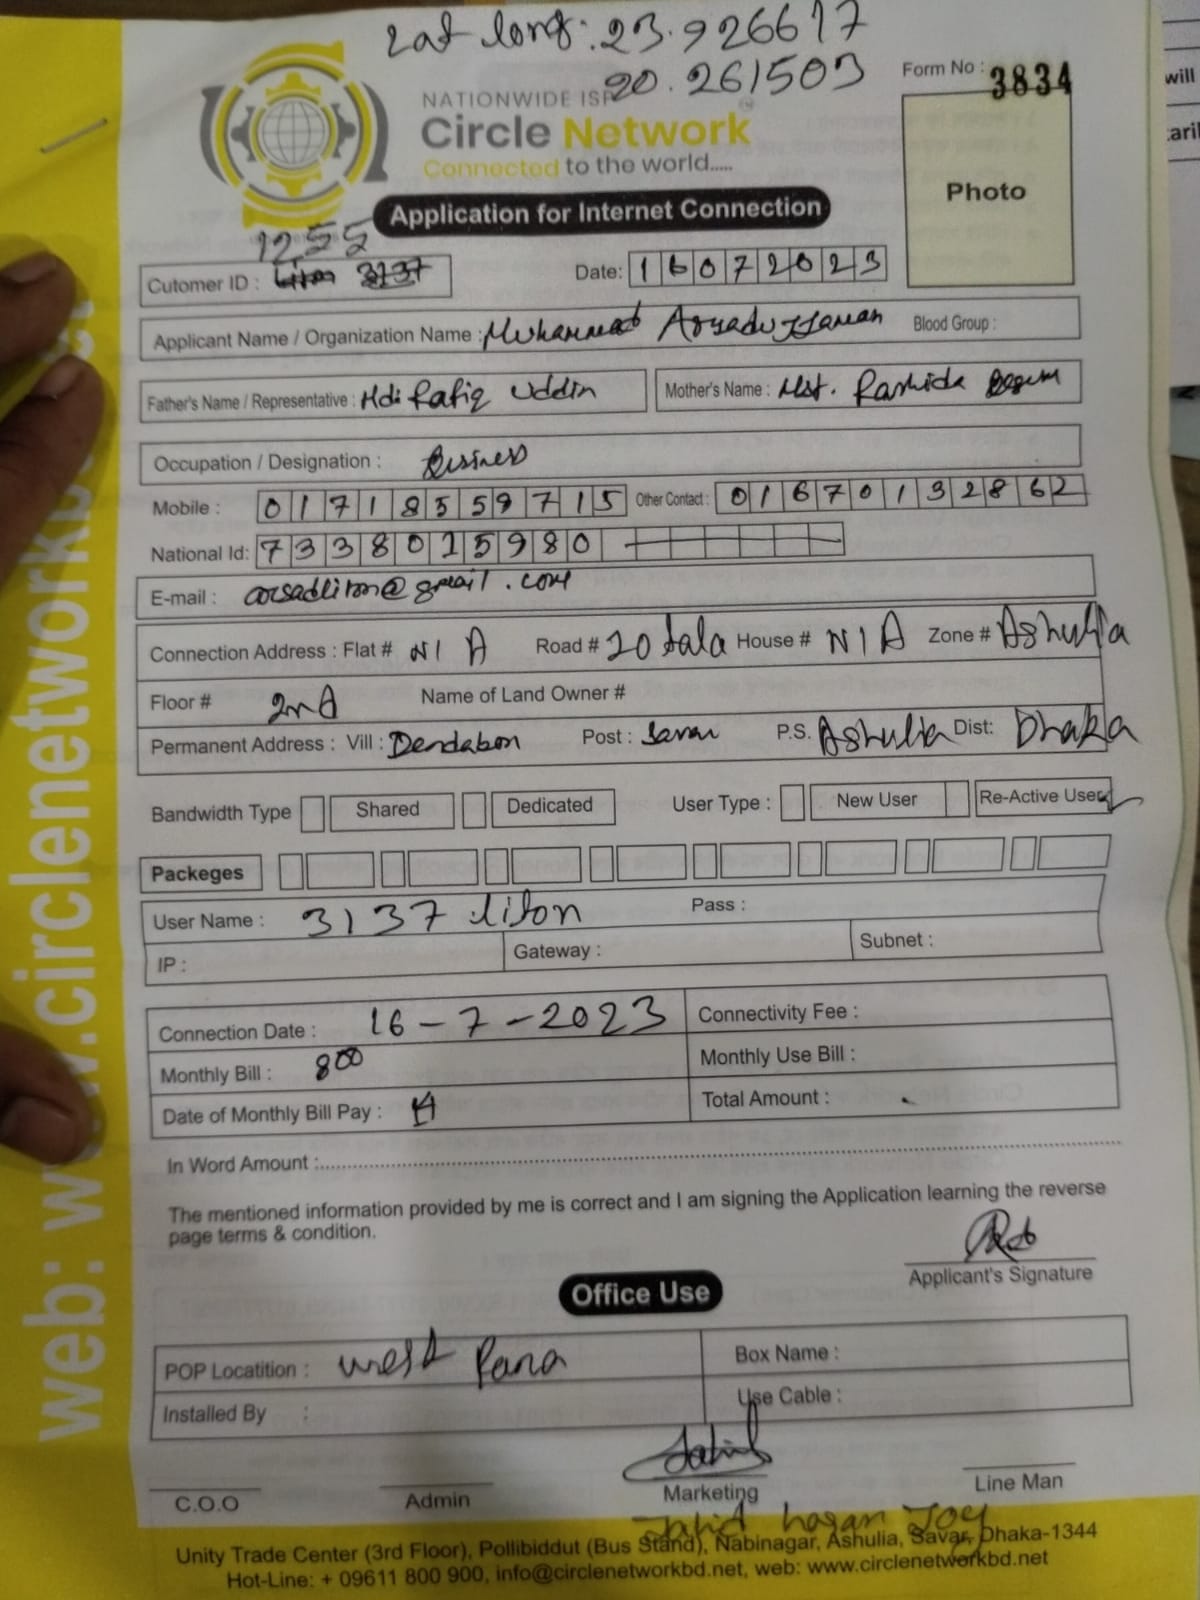 Lat long: 23.926617
90.261503
Form No : 3834
NATIONWIDE ISP
Circle Network
Connected to the world.....
Photo
Application for Internet Connection
1255
Cutomer ID : 3137
Date: 16072023
Applicant Name / Organization Name : Muhammad Blood Group :
Father's Name / Representative : Md: Rafiq Uddin Mother's Name : Mst. Rashida Begum
Occupation / Designation : Business
Mobile : 01718559715 Other Contact : 01670132862
National Id: 7338015980
E-mail : arsadliton@gmail.com
Connection Address : Flat # N/A Road # 20 tala House # N/A Zone # Ashulia
Floor # 2nd Name of Land Owner #
Permanent Address : Vill : Dendabon Post : Savar P.S. Ashulia Dist: Dhaka
Bandwidth Type Shared Dedicated User Type : New User Re-Active User
Packeges
User Name : 3137 liton Pass :
IP : Gateway : Subnet :
Connection Date : 16-7-2023 Connectivity Fee :
Monthly Bill : 800 Monthly Use Bill :
Date of Monthly Bill Pay : Total Amount :
In Word Amount :
The mentioned information provided by me is correct and I am signing the Application learning the reverse
page terms & condition.
Applicant's Signature
Office Use
POP Locatition : West Para Box Name :
Installed By : Use Cable :
C.O.O Admin Marketing Line Man
Jahid hasan Joy
Unity Trade Center (3rd Floor), Pollibiddut (Bus Stand), Nabinagar, Ashulia, Savar, Dhaka-1344
Hot-Line: + 09611 800 900, info@circlenetworkbd.net, web: www.circlenetworkbd.net
web: www.circlenetworkbd.net
will